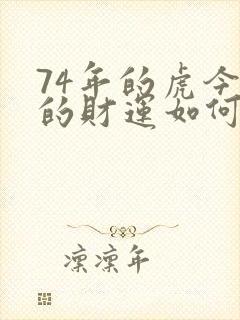 74年的虎今
的財運如何
凛凛年